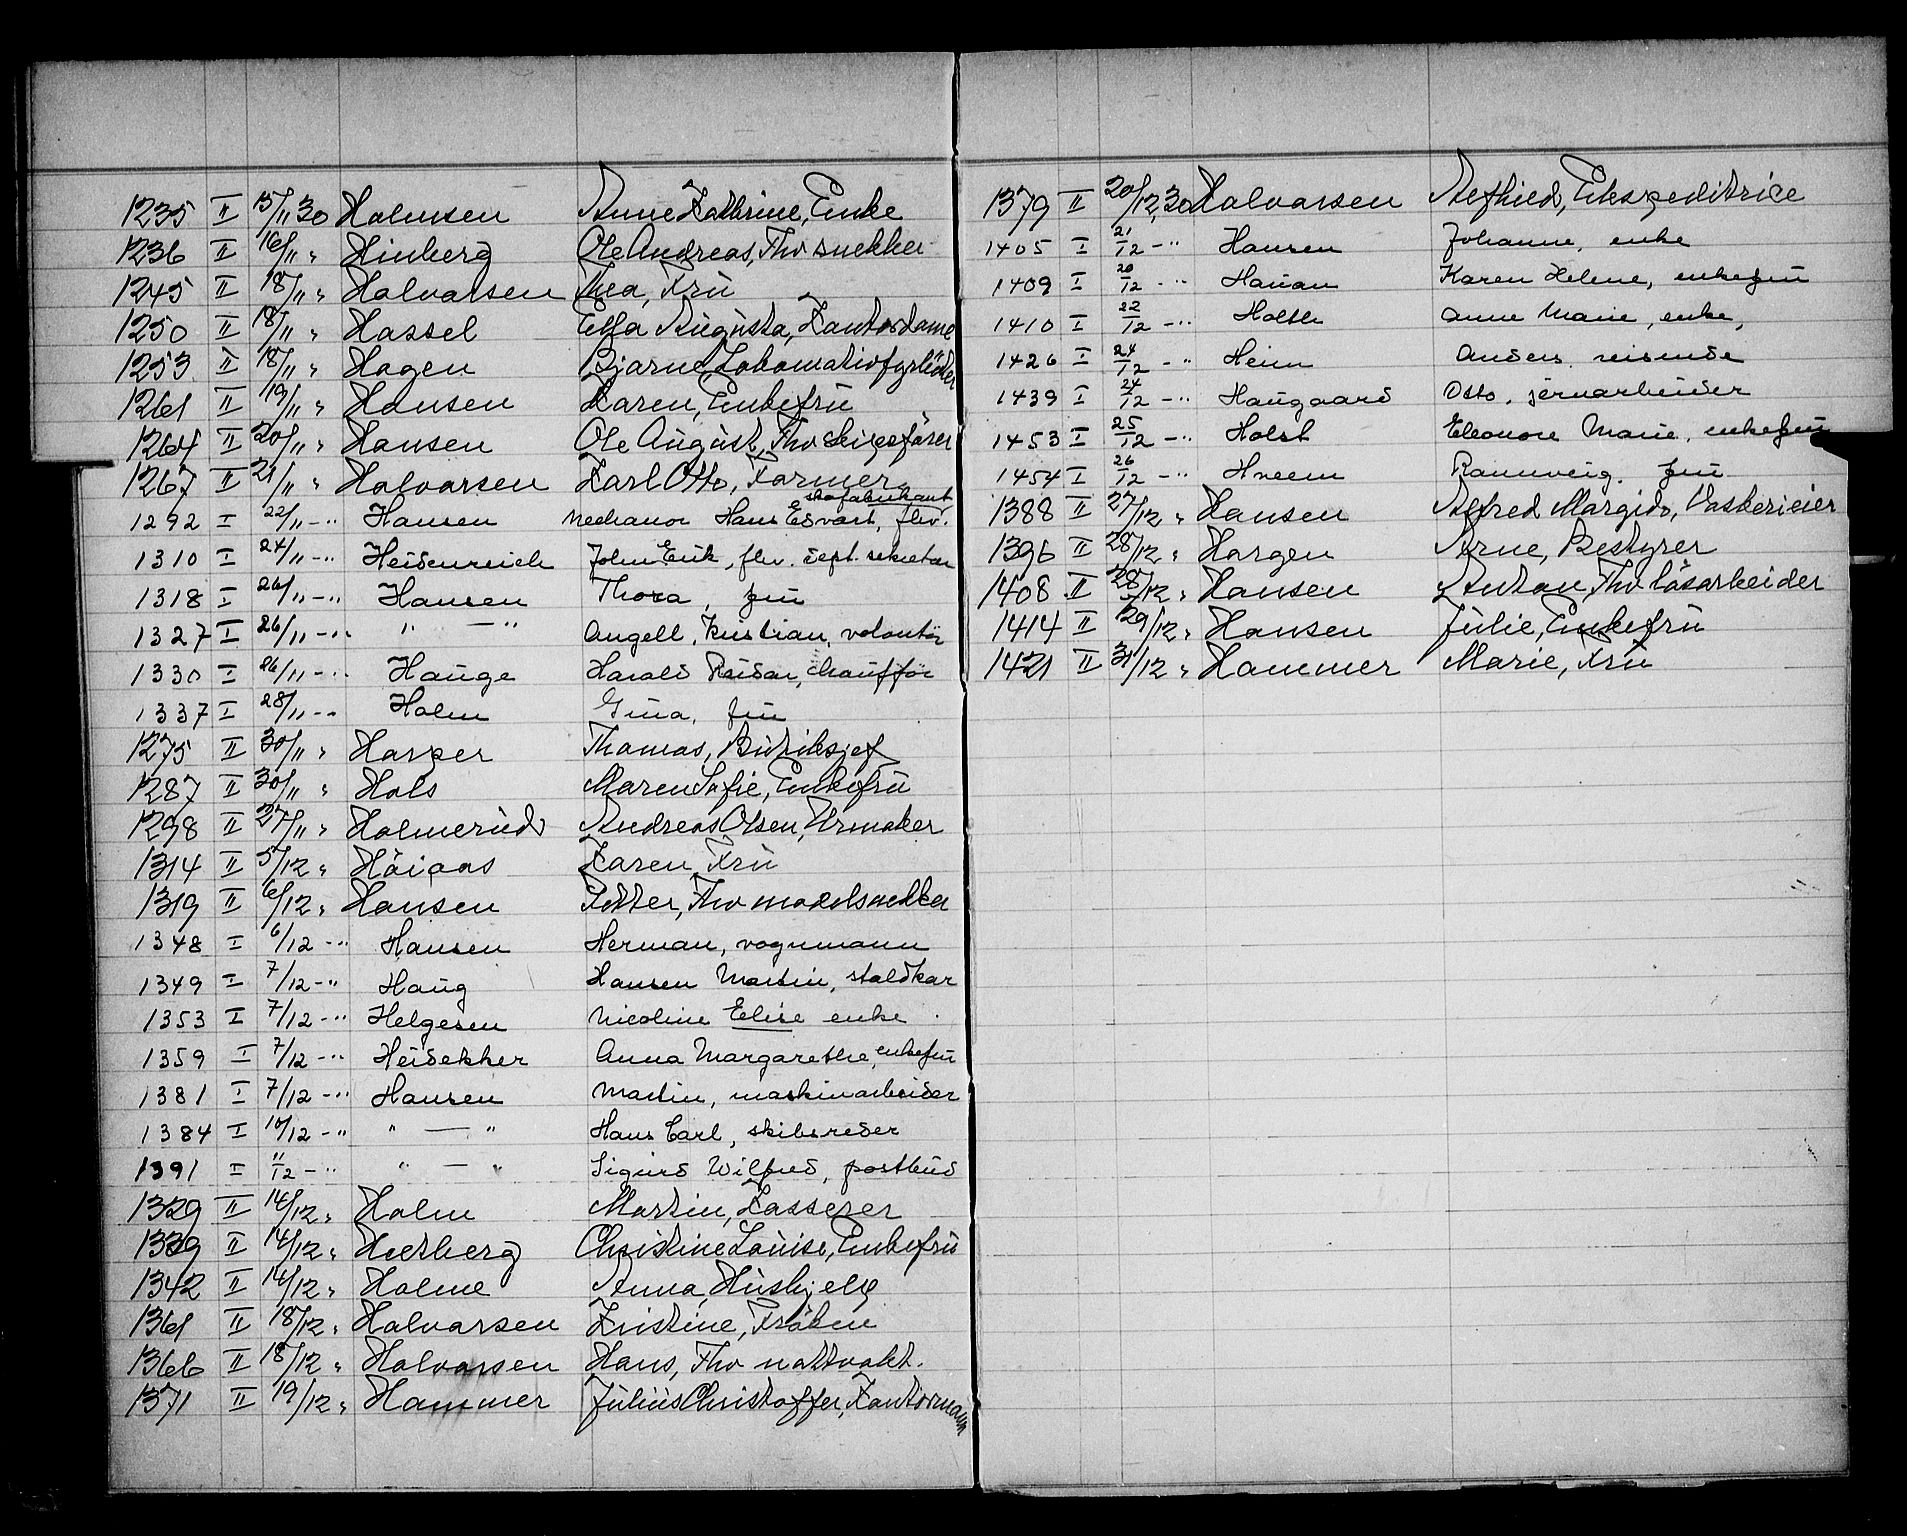 1235 II 15/11 30 Halmsen Anne Kathrine, Enke
1236 II 16/11 " Hinberg Ole Andreas, Fhv snekker
1245 II 18/11 " Halvarsen Thea, Fru
1250 II 18/11 " Hassel Effa Augusta, Kantordame
1253 II 18/11 " Hagen Bjarne, Lokomativfyrböter
1261 II 19/11 " Hansen Karen, Enkefru
1264 II 20/11 " Hansen Ole August, Fhv skipsförer
1267 II 21/11 " Halvarsen Karl Otto, Farmer
1292 I 22/11 -" Hansen Mechanor Hans Edvart, fhv. skofabrikant
1310 I 24/11 -" Heidenreich John Erik, fhv. dept. sekretær
1318 I 26/11 -" Hansen Thora, fru
1327 I 26/11 -" " — " Angell, Kristian, volontör
1330 I 26/11 -" Hauge Harald Reidar, chafför
1337 I 28/11 -" Holm Gina, fru
1275 II 30/11 " Harper Thomas, Butiksjef
1287 II 30/11 " Hals Maren Sofie, Enkefru
1298 II 27/11 " Halmerud Andreas Olsen, Urmaker
1314 II 5/12 " Höiaas Karen, Fru
1319 II 6/12 " Hansen Petter, Fhv modelsnekker
1348 I 6/12 -" Hansen Herman, vognmann
1349 I 7/12 -" Haug Hansen Martin, staldkar
1353 I 7/12 -" Helgesen Nicoline Elise enke
1359 I 7/12 -" Heidekker Anna Margarethe, enkefru
1381 I 7/12 -" Hansen Martin, maskinarbeider
1384 I 10/12 -" " — " Hans Carl, skibsreder
1391 I 11/12 -" " — " Sigurd Wilfred, postbud
1329 II 14/12 " Halm Martin, Kasserer
1339 II 14/12 " Hertberg Christine Louise, Enkefru
1342 II 14/12 " Halme Anna, Hushjelp
1361 II 18/12 " Halvarsen Kristine, Fröken
1366 II 18/12 " Halvorsen Hans, Fhv nattvakt.
1371 II 19/12 " Hammer Julius Christoffer, Kantormann
1379 II 20/12 30 Halvarsen Ekspeditrice
1405 I 21/12 -" Hansen Johanne, enke
1409 I 20/12 -" Hauan Karen Helene, enkefru
1410 I 22/12 -" Holth Anne Marie, enke,
1426 I 24/12 -" Heim Anders reisende
1439 I 24/12 -" Haugaard Otto, jernarbeider
1453 I 25/12 -" Holst Eleonore Marie, enkefru
1454 I 26/12 -" Hveem Rannveig, fru
1388 II 27/12 " Hansen Alfred Margido, Vaskerieier
1396 II 28/12 " Hargen Arne, Bestyrer
1408 II 28/12 " Hansen Anton, Fhv lösarbeider
1414 II 29/12 " Hansen Julie, Enkefru
1421 II 31/12 " Hammer Marie, Fru